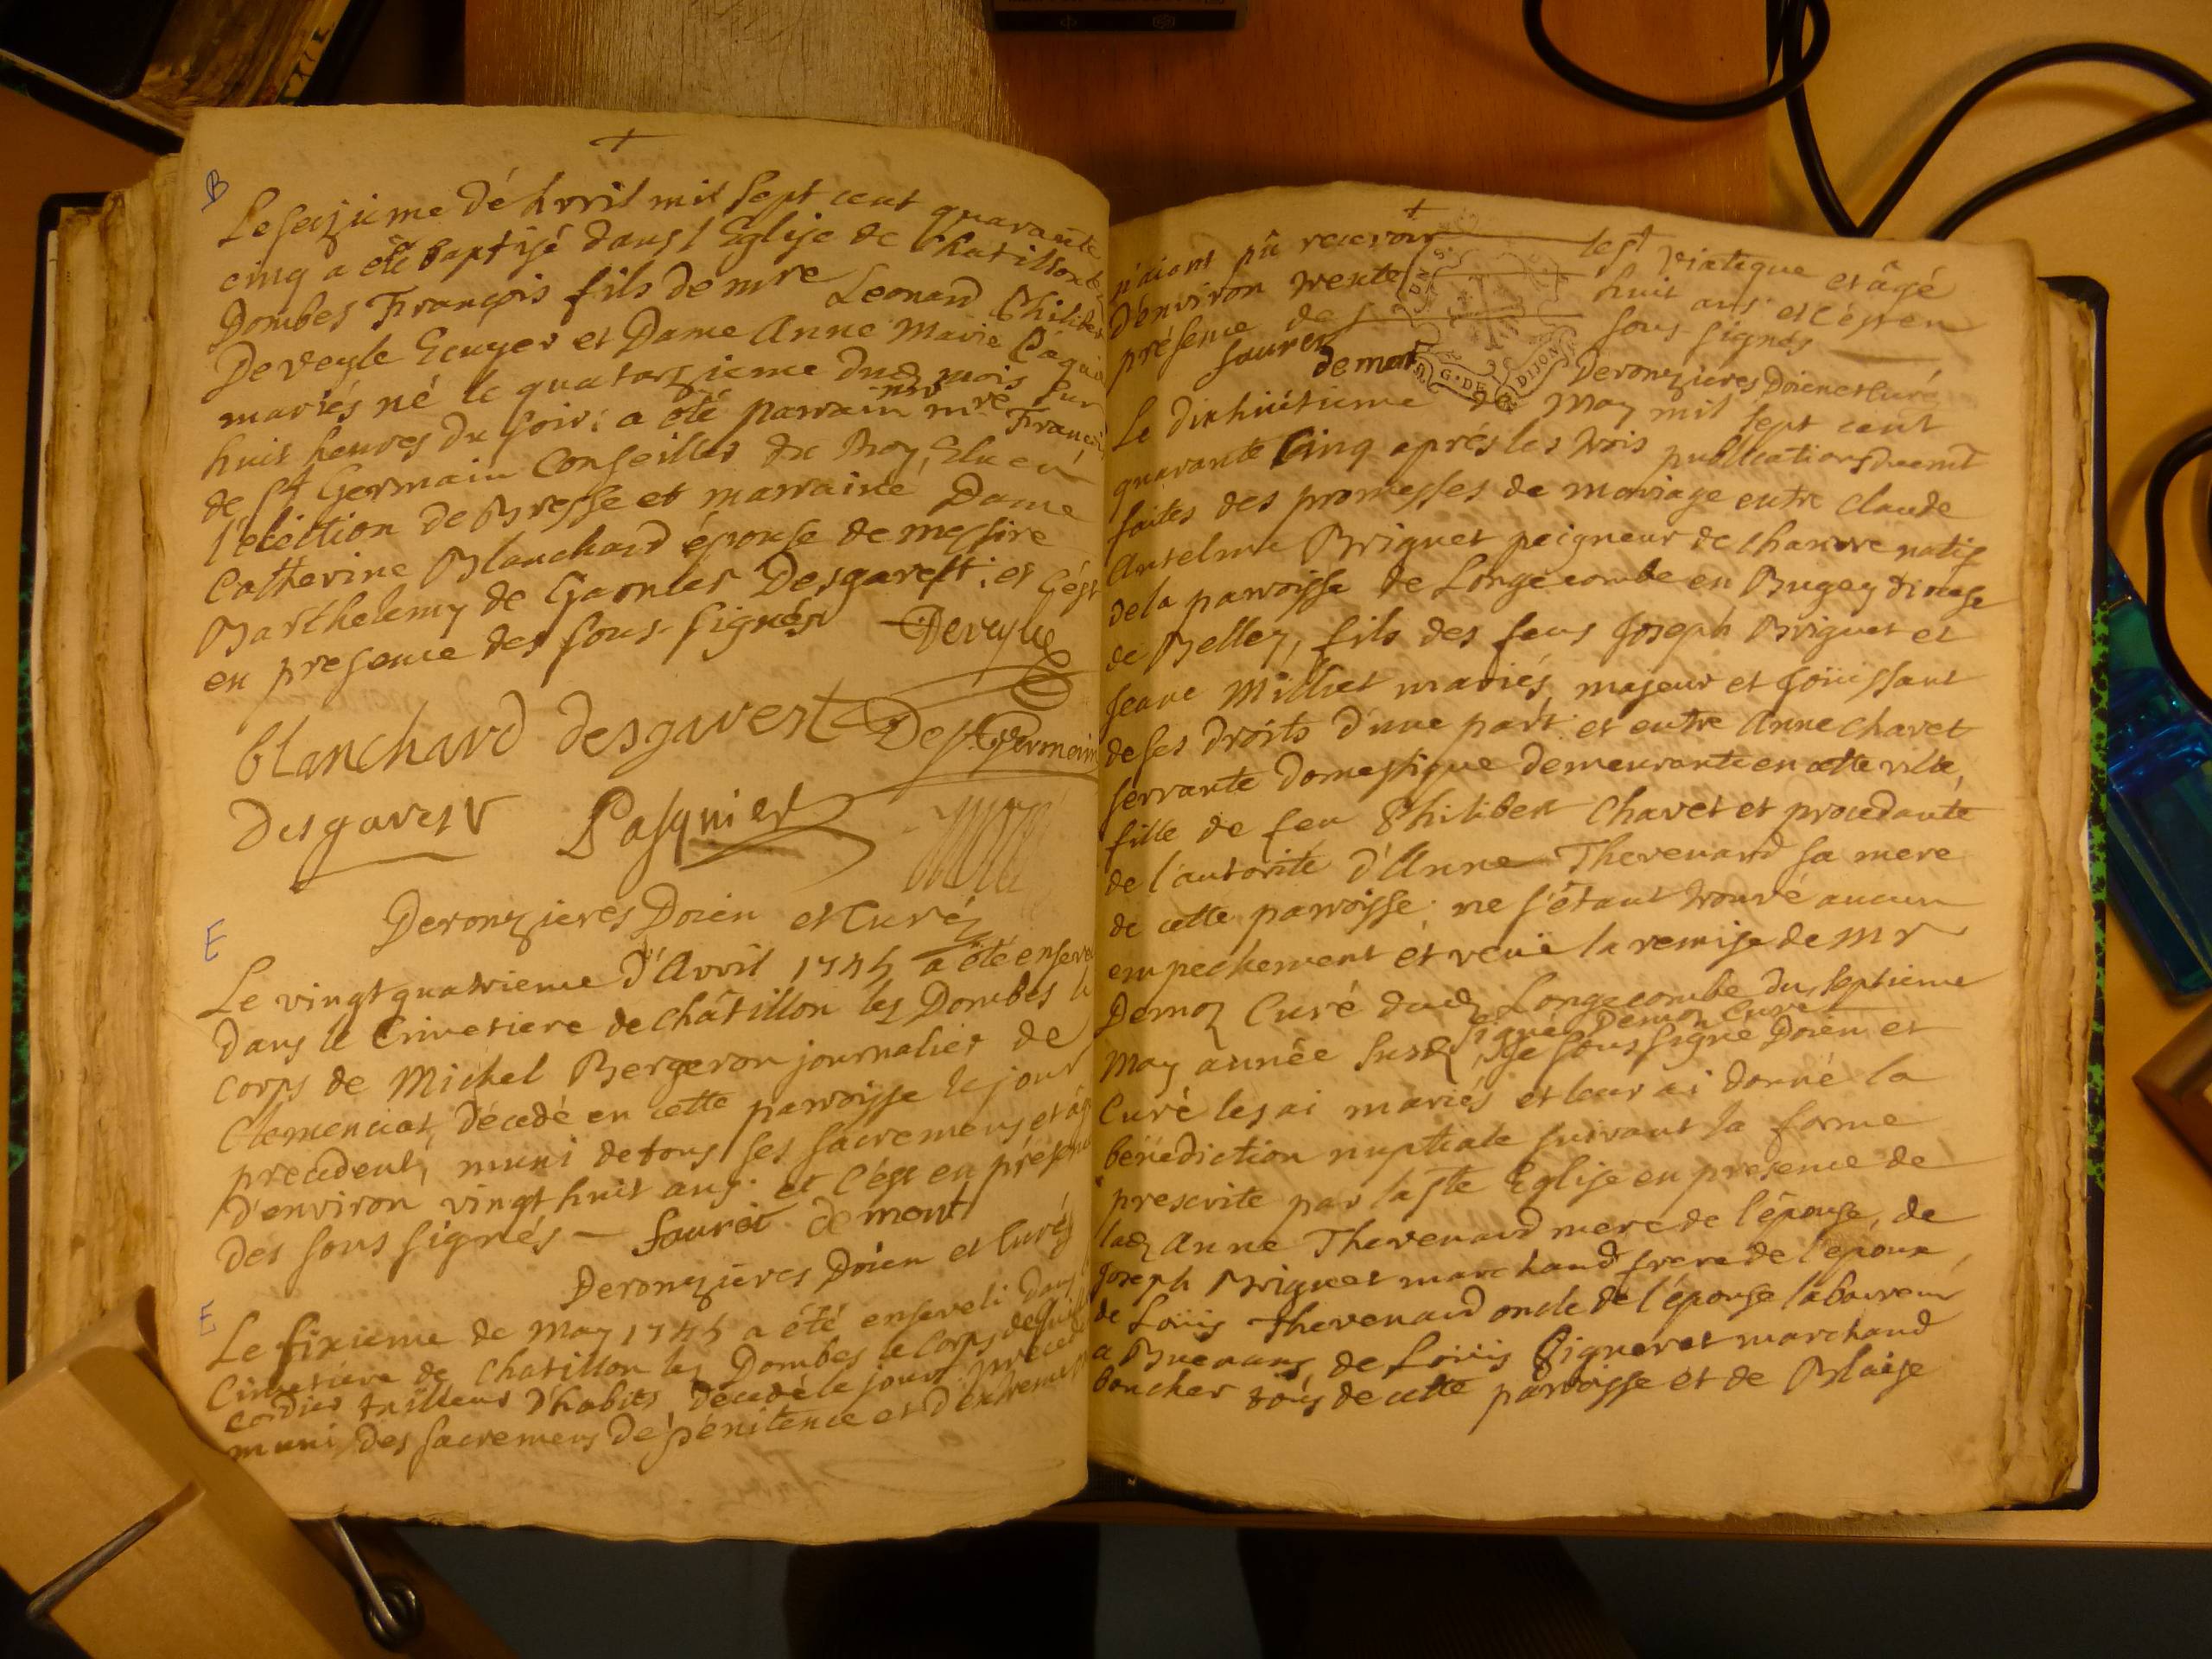 B
Le seizieme dé Avril mil sept cent quarante
cinq a été baptisé dans l'Eglise de Chatillon les
Dombes François fils de mre Leonard Philibert
Deveyle Ecuyer et Dame Anne Marie
mariés né le quatorzieme dud. mois sur
huit heures du soir: a été parrain mre François
de St Germain Conseiller du Roy, Elu en
l'election de Bresse et marraine Dame
Catherine Blanchard épouse de messire
Barthelemy de Garnier Desgarest: et c'ést
en presence des sous-signés Deveyle
blanchard desgarest De St Germain
Desgarest Pasquier
Deronzieres Doien et Curé
E
Le vingtquatrieme d'Avril 1745 a été enseveli
dans le Cimetiere de châtillon les Dombes le
corps de Michel Bergeron journalier de
Clemenciat, décédé en cette parroisse le jour
precedent, muni de tous ses sacremens et âgé
d'environ vingt huit ans: et c'ést en présence
des sous signés — fauret demont
Deronzieres Doien et Curé
E
Le sixieme de may 1745 a été enseveli dans
Cimetiere de Chatillon les Dombes le corps de
cordier tailleur d'habits, décédé le jour precedent
muni des sacremens de pénitence et d'extreme
n'aiant pû recevoir le st viatique et âgé
d'environ trente huit ans et c'ést en
présence des sous-signés
fauret
demont
G. DE DIJON
Deronzieres Doien et Curé
Le dixhuitieme de May mil sept cent
quarante cinq aprés les trois publications duemt
faites des promesses de mariage entre Claude
Antelme Briguet peigneur de chanvre natif
de la parroisse de Longecombe en Bugey diocese
de Belley, fils des feus Joseph Briguet et
Jeane Milliet mariés, majeur et joüissant
de ses droits d'une part: et entre Anne Chavet
servante domestique demeurante en cette ville,
fille de feu Philibert Chavet et procedante
de l'autorité d'Anne Thevenard sa mere
de cette parroisse: ne s'étant trouvé aucun
empechement et veüe la remise de Mr
Demoz Curé dud. Longecombe du septieme
signé Demoz Curé
May année susd. Je sous signé Doien et
Curé les ai mariés et leur ai donné la
bénédiction nuptiale suivant la forme
prescrite par la Ste Eglise en presence de
lad. Anne Thevenard mere de l'épouse, de
Joseph Briguet marchand frere de l'epoux,
de Loüis Thevenard oncle de l'épouse laboureur
a Buenans, de Loüis Pigneret marchand
boucher tous de cette parroisse et de Blaise